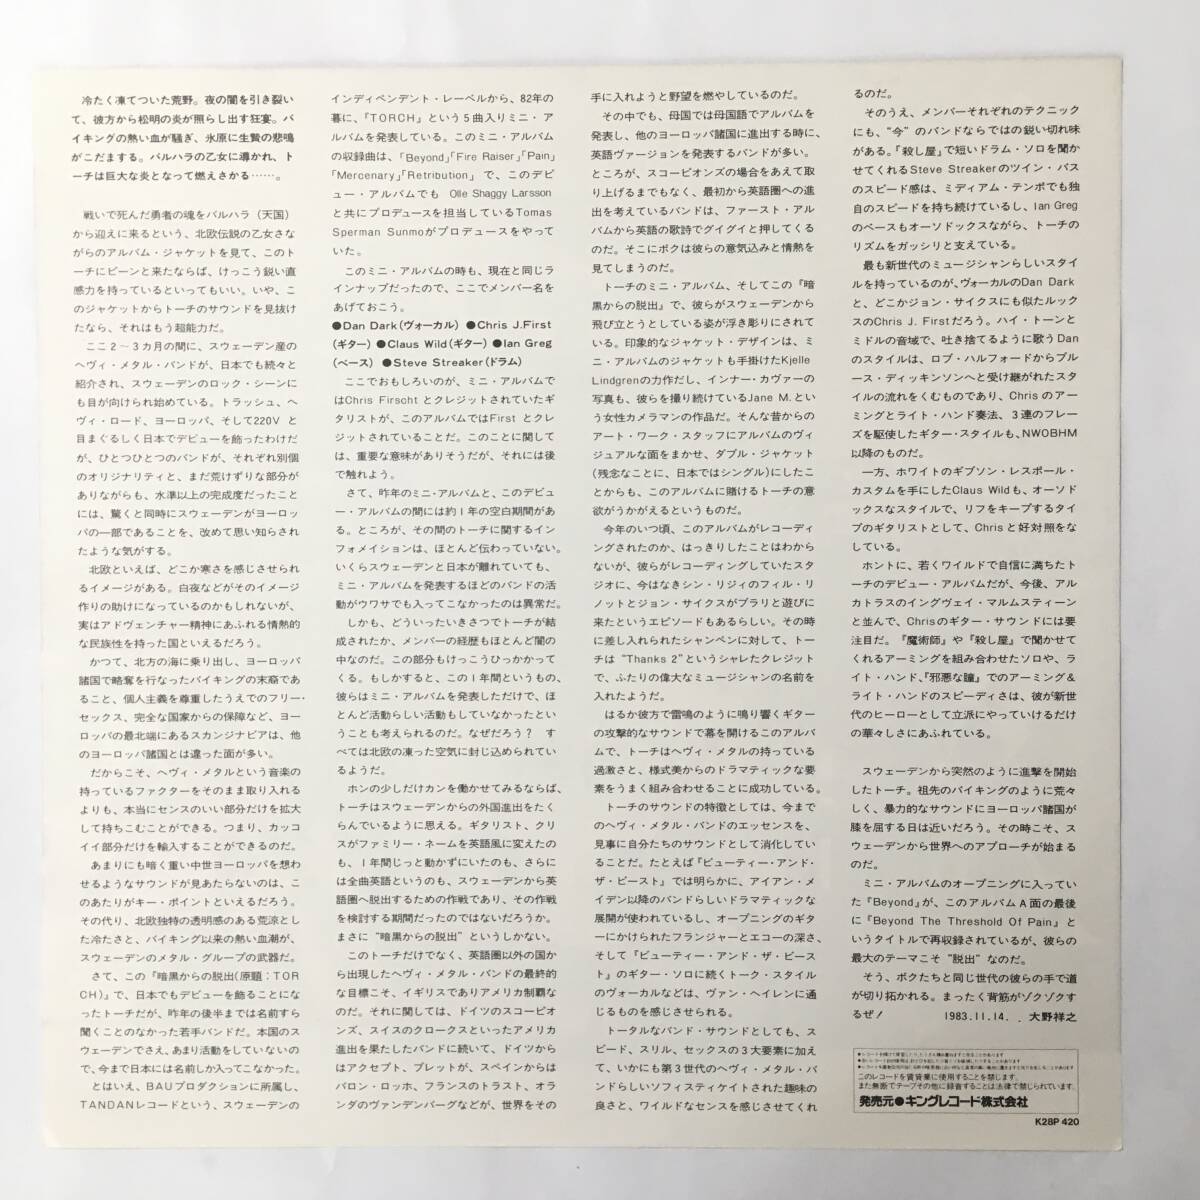 冷たく凍てついた荒野。夜の闇を引き裂い
て、彼方から松明の炎が照らし出す狂宴。バ
イキングの熱い血が騒ぎ、氷原に生贄の悲鳴
がこだまする。バルハラの乙女に導かれ、ト
ーチは巨大な炎となって燃えさかる……。
戦いで死んだ勇者の魂をバルハラ（天国）
から迎えに来るという、北欧伝説の乙女さな
がらのアルバム・ジャケットを見て、このト
ーチにピーンと来たならば、けっこう鋭い直
感力を持っているといってもいい。いや、こ
のジャケットからトーチのサウンドを見抜け
たなら、それはもう超能力だ。
ここ2〜3カ月の間に、スウェーデン産の
ヘヴィ・メタル・バンドが、日本でも続々と
紹介され、スウェーデンのロック・シーンに
も目が向けられ始めている。トラッシュ、ヘ
ヴィ・ロード、ヨーロッパ、そして220Vと
目まぐるしく日本でデビューを飾ったわけだ
が、ひとつひとつのバンドが、それぞれ別個
のオリジナリティと、まだ荒けずりな部分が
ありながらも、水準以上の完成度だったこと
には、驚くと同時にスウェーデンがヨーロッ
パの一部であることを、改めて思い知らされ
たような気がする。
北欧といえば、どこか寒さを感じさせられ
るイメージがある。白夜などがそのイメージ
作りの助けになっているのかもしれないが、
実はアドヴェンチャー精神にあふれる情熱的
な民族性を持った国といえるだろう。
かつて、北方の海に乗り出し、ヨーロッパ
諸国で略奪を行なったバイキングの末裔であ
ること、個人主義を尊重したうえでのフリー・
セックス、完全な国家からの保障など、ヨー
ロッパの最北端にあるスカンジナビアは、他
のヨーロッパ諸国とは違った面が多い。
だからこそ、ヘヴィ・メタルという音楽の
持っているファクターをそのまま取り入れる
よりも、本当にセンスのいい部分だけを拡大
して持ちこむことができる。つまり、カッコ
イイ部分だけを輸入することができるのだ。
あまりにも暗く重い中世ヨーロッパを想わ
せるようなサウンドが見あたらないのは、こ
のあたりがキー・ポイントといえるだろう。
その代り、北欧独特の透明感のある荒涼とし
た冷たさと、バイキング以来の熱い血潮が、
スウェーデンのメタル・グループの武器だ。
さて、この『暗黒からの脱出（原題：TOR
CH）』で、日本でもデビューを飾ることにな
ったトーチだが、昨年の後半までは名前すら
聞くことのなかった若手バンドだ。本国のス
ウェーデンでさえ、あまり活動をしていないの
で、今まで日本には名前しか入ってこなかった。
とはいえ、BAUプロダクションに所属し、
TANDANレコードという、スウェーデンの
インディペンデント・レーベルから、82年の
暮に、『TORCH』という5曲入りミニ・ア
ルバムを発表している。このミニ・アルバム
の収録曲は、「Beyond」「Fire Raiser」「Pain」
「Mercenary」「Retribution」で、このデビ
ュー・アルバムでも Olle Shaggy Larsson
と共にプロデュースを担当しているTomas
Sperman Sunmoがプロデュースをやって
いた。
このミニ・アルバムの時も、現在と同じラ
インナップだったので、ここでメンバー名を
あげておこう。
●Dan Dark（ヴォーカル）●Chris J.First
（ギター）●Claus Wild（ギター）●Ian Greg
（ベース）●Steve Streaker（ドラム）
ここでおもしろいのが、ミニ・アルバムで
はChris Firschtとクレジットされていたギ
タリストが、このアルバムではFirstとクレ
ジットされていることだ。このことに関して
は、重要な意味がありそうだが、それには後
で触れよう。
さて、昨年のミニ・アルバムと、このデビュ
ー・アルバムの間には約1年の空白期間があ
る。ところが、その間のトーチに関するイン
フォメイションは、ほとんど伝わっていない。
いくらスウェーデンと日本が離れていても、
ミニ・アルバムを発表するほどのバンドの活
動がウワサでも入ってこなかったのは異常だ。
しかも、どういったいきさつでトーチが結
成されたか、メンバーの経歴もほとんど闇の
中なのだ。この部分もけっこうひっかかって
くる。もしかすると、この1年間というもの、
彼らはミニ・アルバムを発表しただけで、ほ
とんど活動らしい活動もしていなかったとい
うことも考えられるのだ。なぜだろう？　す
べては北欧の凍った空気に封じ込められてい
るようだ。
ホンの少しだけカンを働かせてみるならば、
トーチはスウェーデンからの外国進出をたく
らんでいるように思える。ギタリスト、クリ
スがファミリー・ネームを英語風に変えたの
も、1年間じっと動かずにいたのも、さらに
は全曲英語というのも、スウェーデンから英
語圏へ脱出するための作戦であり、その作戦
を検討する期間だったのではないだろうか。
まさに“暗黒からの脱出”というしかない。
このトーチだけでなく、英語圏以外の国か
ら出現したヘヴィ・メタル・バンドの最終的
な目標こそ、イギリスでありアメリカ制覇な
のだ。それに関しては、ドイツのスコーピオ
ンズ、スイスのクロークスといったアメリカ
進出を果たしたバンドに続いて、ドイツから
はアクセプト、ブレット、が、スペインからは
バロン・ロッホ、フランスのトラスト、オラ
ンダのヴァンデンバーグなどが、世界をその
手に入れようと野望を燃やしているのだ。
その中でも、母国では母国語でアルバムを
発表し、他のヨーロッパ諸国に進出する時に、
英語ヴァージョンを発表するバンドが多い。
ところが、スコーピオンズの場合をあえて取
り上げるまでもなく、最初から英語圏への進
出を考えているバンドは、ファースト・アル
バムから英語の歌詩でグイグイと押してくる
のだ。そこにボクは彼らの意気込みと情熱を
見てしまうのだ。
トーチのミニ・アルバム、そしてこの『暗
黒からの脱出』で、彼らがスウェーデンから
飛び立とうとしている姿が浮き彫りにされて
いる。印象的なジャケット・デザインは、ミ
ニ・アルバムのジャケットも手掛けたKjelle
Lindgrenの力作だし、インナー・カヴァーの
写真も、彼らを撮り続けているJane M.とい
う女性カメラマンの作品だ。そんな昔からの
アート・ワーク・スタッフにアルバムのヴィ
ジュアルな面をまかせ、ダブル・ジャケット
（残念なことに、日本ではシングル）にしたこ
とからも、このアルバムに賭けるトーチの意
欲がうかがえるというものだ。
今年のいつ頃、このアルバムがレコーディ
ングされたのか、はっきりしたことはわから
ないが、彼らがレコーディングしていたスタ
ジオに、今はなきシン・リジィのフィル・リ
ノットとジョン・サイクスがブラリと遊びに
来たというエピソードもあるらしい。その時
に差し入れられたシャンペンに対して、トー
チは“Thanks 2”というシャレたクレジット
で、ふたりの偉大なミュージシャンの名前を
入れたようだ。
はるか彼方で雷鳴のように鳴り響くギター
の攻撃的なサウンドで幕を開けるこのアルバ
ムで、トーチはヘヴィ・メタルの持っている
過激さと、様式美からのドラマティックな要
素をうまく組み合わせることに成功している。
トーチのサウンドの特徴としては、今まで
のヘヴィ・メタル・バンドのエッセンスを、
見事に自分たちのサウンドとして消化してい
ることだ。たとえば『ビューティー・アンド・
ザ・ビースト』では明らかに、アイアン・メ
イデン以降のバンドらしいドラマティックな
展開が使われているし、オープニングのギタ
ーにかけられたフランジャーとエコーの深さ、
そして『ビューティー・アンド・ザ・ビース
ト』のギター・ソロに続くトーク・スタイル
のヴォーカルなどは、ヴァン・ヘイレンに通
じるものを感じさせられる。
トータルなバンド・サウンドとしても、ス
ピード、スリル、セックスの3大要素に加え
て、いかにも第3世代のヘヴィ・メタル・バ
ンドらしいソフィスティケイトされた趣味の
良さと、ワイルドなセンスを感じさせてくれ
るのだ。
そのうえ、メンバーそれぞれのテクニック
にも、“今”のバンドならではの鋭い切れ味
がある。『殺し屋』で短いドラム・ソロを聞か
せてくれるSteve Streakerのツイン・バス
のスピード感は、ミディアム・テンポでも独
自のスピードを持ち続けているし、Ian Greg
のベースもオーソドックスながら、トーチの
リズムをガッシリと支えている。
最も新世代のミュージシャンらしいスタイ
ルを持っているのが、ヴォーカルのDan Dark
と、どこかジョン・サイクスにも似たルック
スのChris J. Firstだろう。ハイ・トーンと
ミドルの音域で、吐き捨てるように歌うDan
のスタイルは、ロブ・ハルフォードからブル
ース・ディッキンソンへと受け継がれたスタ
イルの流れをくむものであり、Chrisのアー
ミングとライト・ハンド奏法、3連のフレー
ズを駆使したギター・スタイルも、NWOBHM
以降のものだ。
一方、ホワイトのギブソン・レスポール・
カスタムを手にしたClaus Wildも、オーソド
ックスなスタイルで、リフをキープするタイ
プのギタリストとして、Chrisと好対照をな
している。
ホントに、若くワイルドで自信に満ちたト
ーチのデビュー・アルバムだが、今後、アル
カトラスのイングヴェイ・マルムスティーン
と並んで、Chrisのギター・サウンドには要
注目だ。『魔術師』や『殺し屋』で聞かせて
くれるアーミングを組み合わせたソロや、ラ
イト・ハンド、『邪悪な瞳』でのアーミング＆
ライト・ハンドのスピーディさは、彼が新世
代のヒーローとして立派にやっていけるだけ
の華々しさにあふれている。
スウェーデンから突然のように進撃を開始
したトーチ。祖先のバイキングのように荒々
しく、暴力的なサウンドにヨーロッパ諸国が
膝を屈する日は近いだろう。その時こそ、ス
ウェーデンから世界へのアプローチが始まる
のだ。
ミニ・アルバムのオープニングに入ってい
た『Beyond』が、このアルバムA面の最後
に『Beyond The Threshold Of Pain』と
いうタイトルで再収録されているが、彼らの
最大のテーマこそ“脱出”なのだ。
そう、ボクたちと同じ世代の彼らの手で道
が切り拓かれる。まったく背筋がゾクゾクす
るぜ！　1983.11.14．．大野祥之
このレコードを賃貸業に使用することを禁じます。
また無断でテープその他に録音することは法律で禁じられています。
発売元●キングレコード株式会社
K28P 420